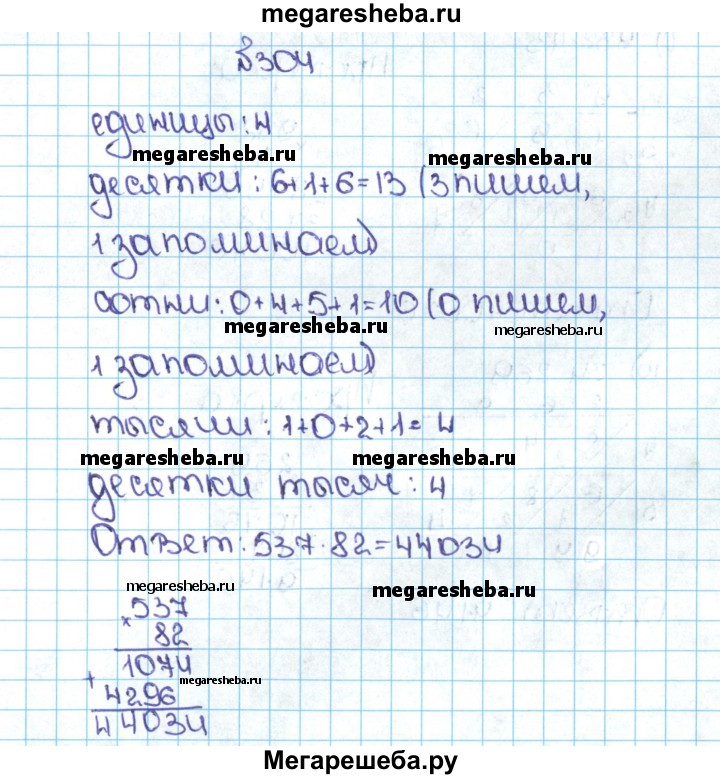 megaresheba.ru
№304
единицы: 4
megaresheba.ru megaresheba.ru
десятки: 6+1+6=13 (3 пишем,
1 запоминаем)
сотни: 0+4+5+1=10 (0 пишем,
megaresheba.ru megaresheba.ru
1 запоминаем)
тысячи: 1+0+2+1=4
megaresheba.ru megaresheba.ru
десятки тысяч: 4
Ответ: 537·82=44034
megaresheba.ru megaresheba.ru
×537
82
1074
megaresheba.ru
+4296
44034
Мегарешеба.ру